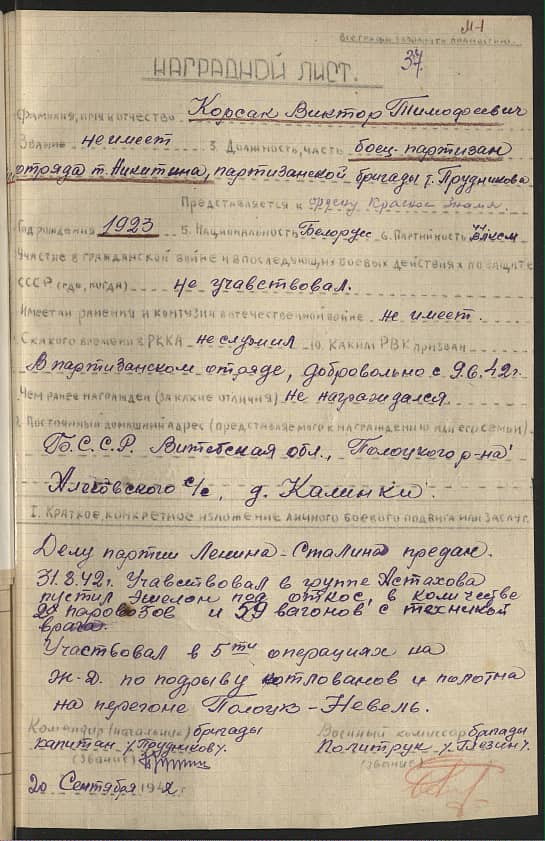 М-1
все графы заполнять полностью.
37.
НАГРАДНОЙ ЛИСТ.
Фамилия, имя и отчество Корсак Виктор Тимофеевич
Звание не имеет 3. Должность, часть боец-партизан
отряда т. Никитина, партизанской бригады т. Прудникова
Представляется к Ордену Красное Знамя.
Год рождения 1923 5. Национальность Белорус 6. Партийность ВЛКСМ
Участие в гражданской войне и в последующих боевых действиях по защите
СССР (где, когда) не учавствовал.
Имеет ли ранения и контузии в отечественной войне не имеет.
С какого времени в РККА не служил 10. Каким РВК призван
В партизанском отряде, добровольно с 9.6.42 г.
Чем ранее награжден (за какие отличия) не награждался.
Постоянный домашний адрес (представляемого к награждению или его семьи).
Б.С.С.Р. Витебская обл., Полоцкого р-на
с/с, д. Калинки.
I. Краткое, конкретное изложение личного боевого подвига или заслуг.
Делу партии Ленина-Сталина предан.
31.8.42 г. Учавствовал в группе Астахова
пустил эшелон под откос, в количестве
паровозов и 59 вагонов с техникой
врага.
Участвовал в 5ти операциях на
Ж-Д. по подрыву котлованов и полотна
на перегоне Полоцк-Невель.
Командир (начальник) бригады Военный комиссар бригады
капитан /Прудников/. Политрук /Глезин/
(звание) (звание)
20 Сентября 1942 г.